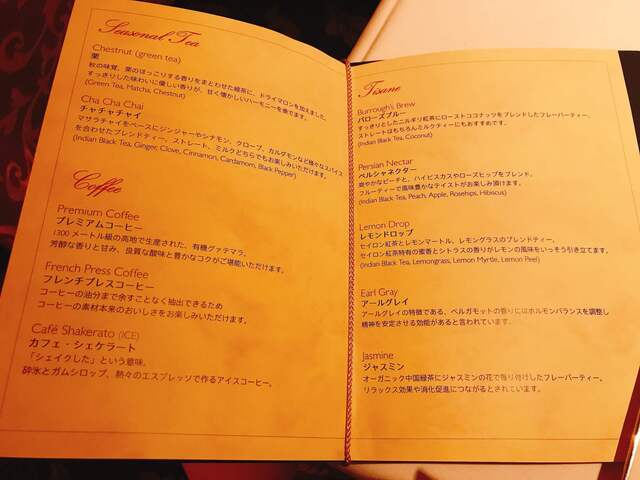 Seasonal Tea
Chestnut (green tea)
栗
秋の味覚、栗のほっこりする香りをまとわせた緑茶に、ドライマロンを加えました。
すっきりした味わいに優しい香りが、甘く懐かしいハーモニーを奏でます。
(Green Tea, Matcha, Chestnut)
Cha Cha Chai
チャチャチャイ
マサラチャイをベースにジンジャーやシナモン、クローブ、カルダモンなど様々なスパイス
を合わせたブレンドティー。ストレート、ミルクどちらでもお楽しみいただけます。
(Indian Black Tea, Ginger, Clove, Cinnamon, Cardamom, Black Pepper)
Coffee
Premium Coffee
プレミアムコーヒー
1300メートル級の高地で生産された、有機グァテマラ。
芳醇な香りと甘み、良質な酸味と豊かなコクがご堪能いただけます。
French Press Coffee
フレンチプレスコーヒー
コーヒーの油分まで余すことなく抽出できるため
コーヒーの素材本来のおいしさをお楽しみいただけます。
Café Shakerato (ICE)
カフェ・シェケラート
「シェイクした」という意味。
砕氷とガムシロップ、熱々のエスプレッソで作るアイスコーヒー。
Tisane
Burrough's Brew
バローズブルー
すっきりとしたニルギリ紅茶にローストココナッツをブレンドしたフレーバーティー。
ストレートはもちろんミルクティーにもおすすめです。
(Indian Black Tea, Coconut)
Persian Nectar
ペルシャネクター
爽やかなピーチと、ハイビスカスやローズヒップをブレンド。
フルーティーで風味豊かなテイストがお楽しみ頂けます。
(Indian Black Tea, Peach, Apple, Rosehips, Hibiscus)
Lemon Drop
レモンドロップ
セイロン紅茶とレモンマートル、レモングラスのブレンドティー。
セイロン紅茶特有の蜜香とシトラスの香りがレモンの風味をいっそう引き立てます。
(Indian Black Tea, Lemongrass, Lemon Myrtle, Lemon Peel)
Earl Gray
アールグレイ
アールグレイの特徴である、ベルガモットの香りにはホルモンバランスを調整し
精神を安定させる効能があると言われています。
Jasmine
ジャスミン
オーガニック中国緑茶にジャスミンの花で香り付けしたフレーバーティー。
リラックス効果や消化促進につながるとされています。